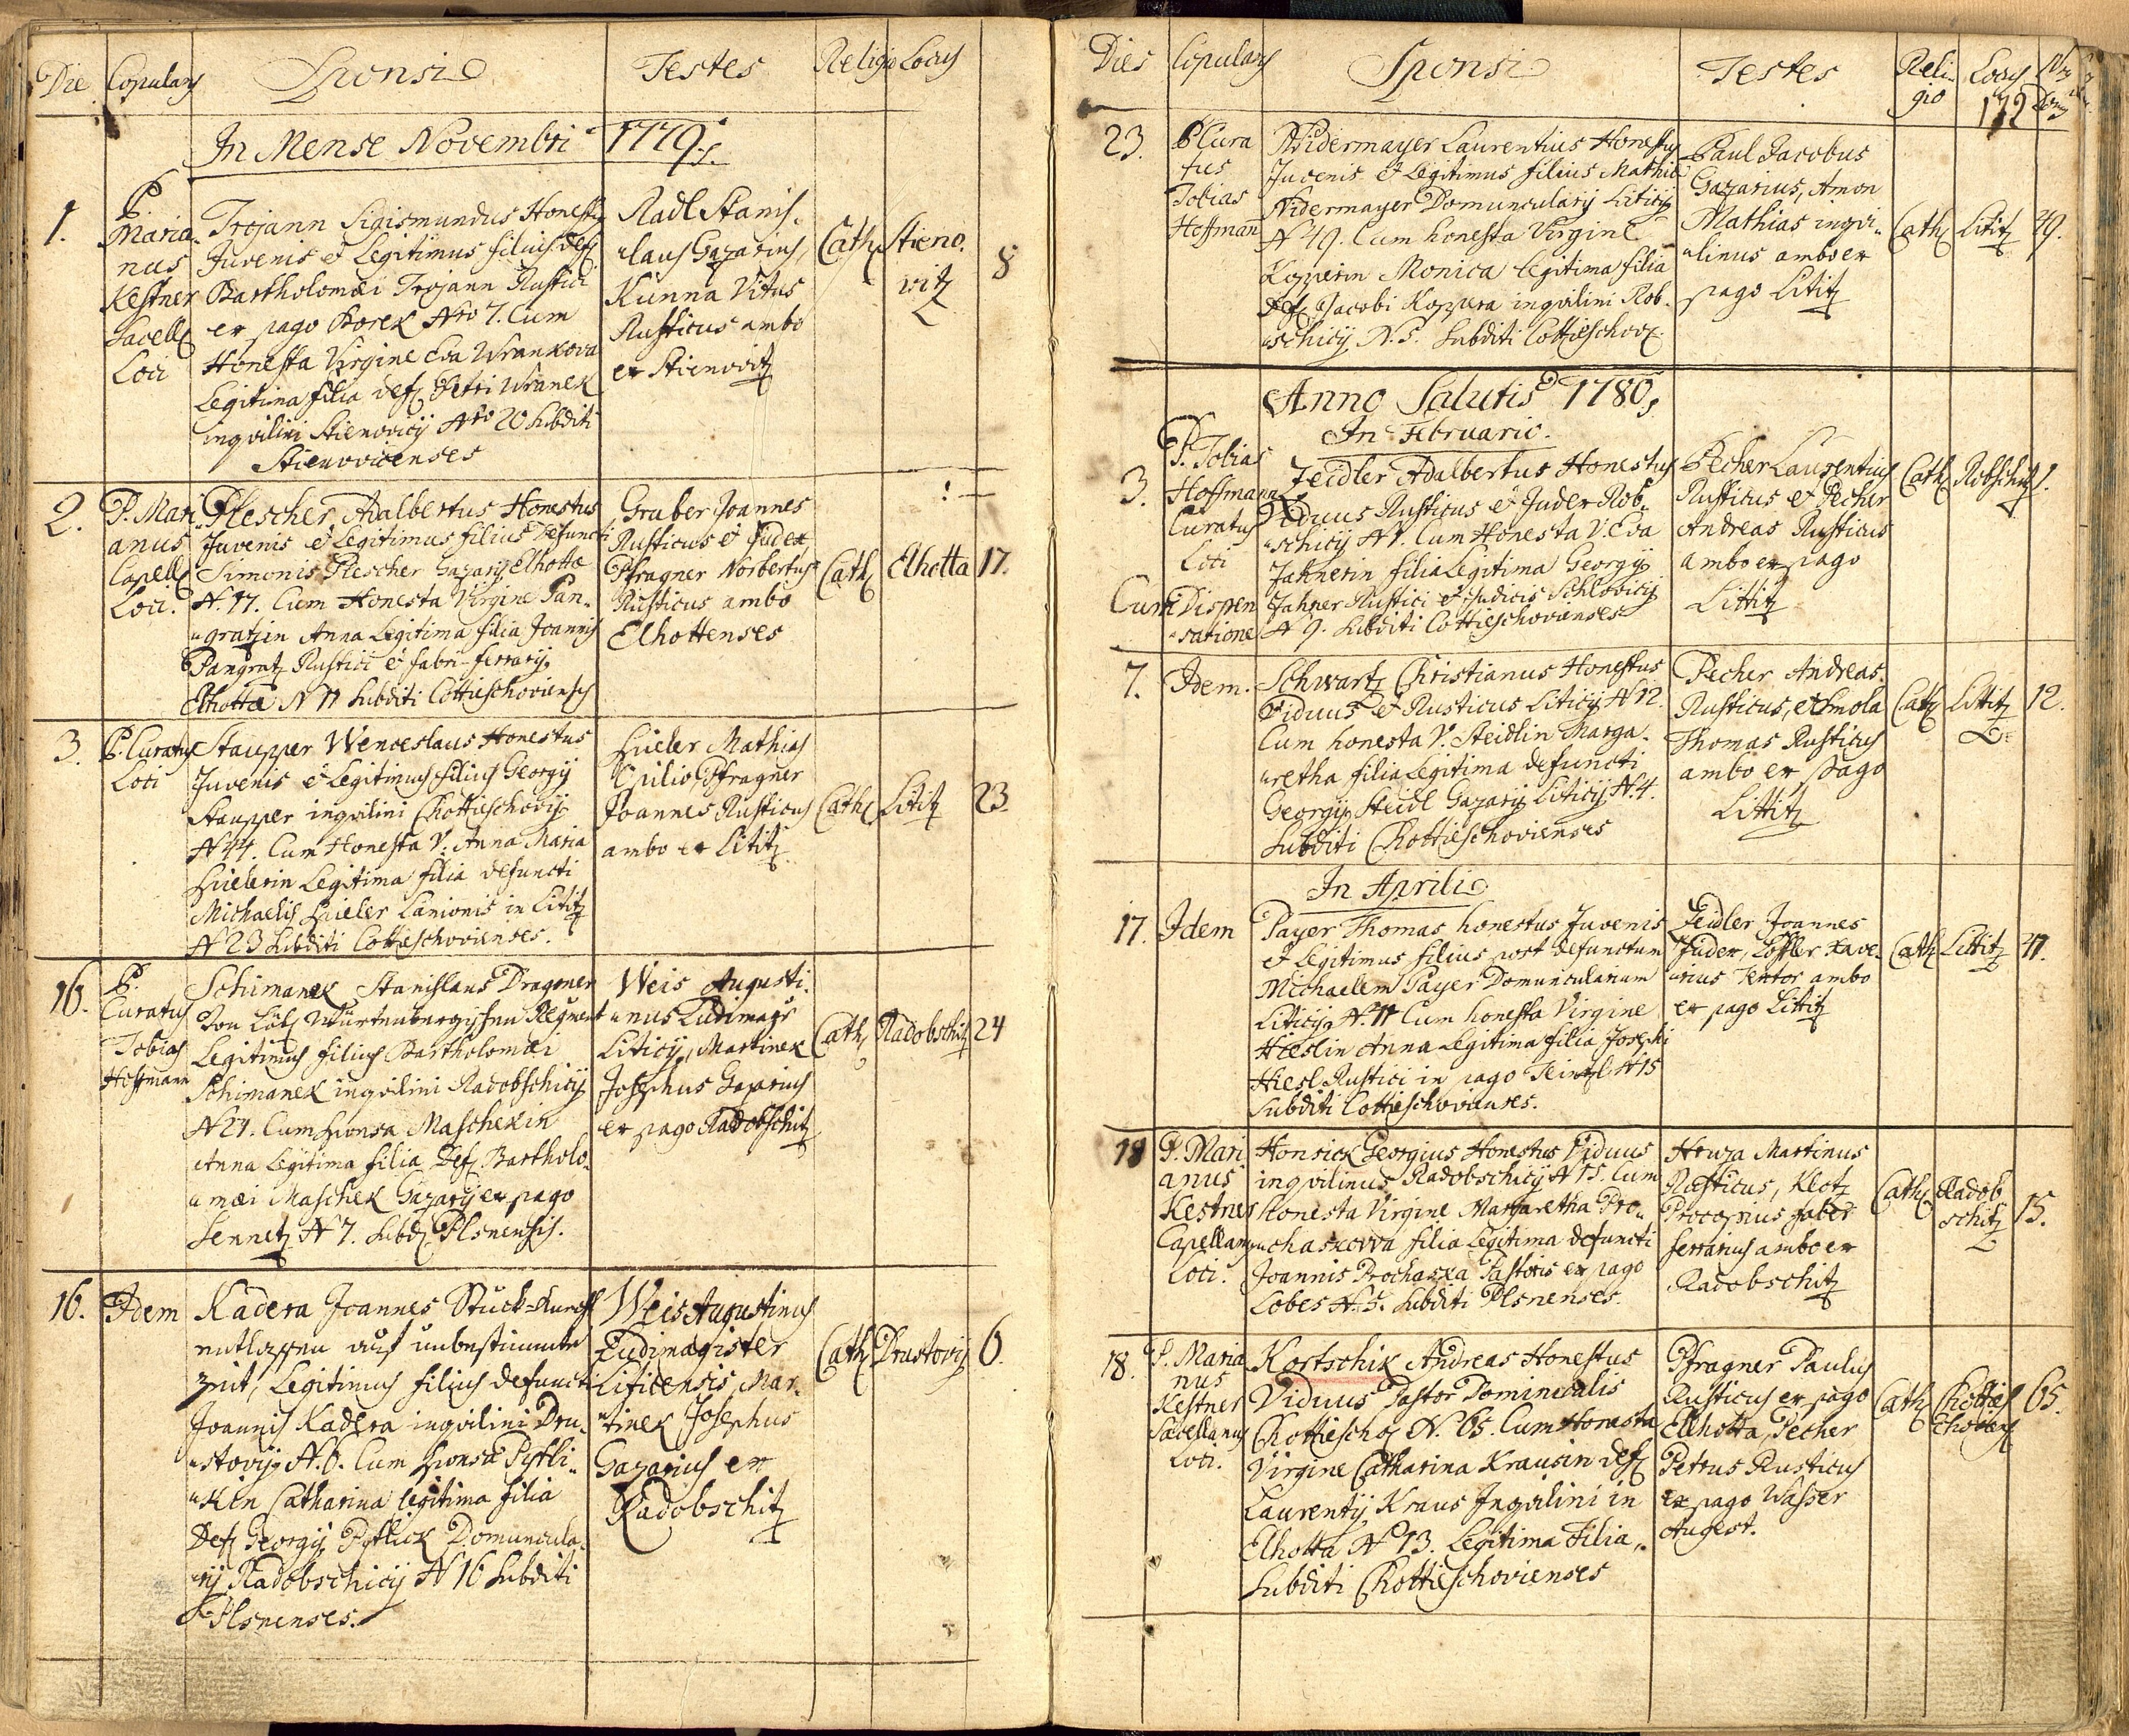 Die Copulans Sponsi Testes Religio Locus
In Mense Novembri 1779.
1.
P.
Maria-
nus
Kestner
Sacell
Loci
Trojann Sigismundus Honestus
Juvenis et Legitimus filius def
Bartholomæi Trojann Rustici
ex pago Borek Nro 7. Cum
Honesta Virgine Eva Wrankova
Legitima filia def Petri Wranek
inqvilini Stienovicy Nro 20 Subditi
Stienovicenses
Radl Stanis-
laus Gazarius,
Kunna Vitus
Rusticus ambo
ex Stienovitz
Cath
Stieno-
vitz
8
2.
P. Mari
anus
Capell
Loci.
Plescher Adalbertus Honestus
Juvenis et Legitimus filius Defuncti
Simonis Plescher Gazary Elhottæ
N. 17. Cum Honesta Virgine Pan-
gratzin Anna Legitima filia Joannis
Pangratz Rustici et fabri-ferrary
Elhottæ N 11 Subditi Cottieschoviensis
Gruber Joannes
Rusticus et Judex
Pfragner Norbertus
Rusticus ambo
Elhottenses
Cath Elhotta 17.
3.
P. Curatus
Loci
Staupper Wenceslaus Honestus
Juvenis et Legitimus filius Georgy
Staupper inqvilini Chottieschovy
N 44. Cum Honesta V. Anna Maria
Hüelerin Legitima filia defuncti
Michaelis Hüeler Lanionis in Lititz
N 23 Subditi Cottieschovienses.
Hüeler Mathias
Opilio, Pfragner
Joannes Rusticus
ambo ex Lititz
Cath Lititz 23.
16.
P.
Curatus
Tobias
Hoffmann
Schimanek Stanislaus Dragoner
von Löbl Würtenbergischen Regment
Legitimus filius Bartholomæi
Schimanek inqvilini Radobschicy
N 24. Cum sponsa Maschekin
Anna Legitima filia Def Bartholo-
mæi Maschek Gazary ex pago
Sennetz N 7. Subd Plsnensis.
Weis Augusti-
nus Ludimags
Liticy, Martinek
Josephus Gazarius
ex pago Radobschitz
Cath Radobschitz 24
16. Idem
Kadera Joannes Stuck-Knecht
entlassen auf unbestimmte
Zeit, Legitimus filius defuncti
Joannis Kadera inqvilini Dru-
stovy N. 6. Cum sponsa Pytli-
kin Catharina legitima filia
Def Georgy Pytlick Domuncula-
ry Radobschicy N 16 Subditi
Plsnenses.
Weis Augustinus
Ludimagister
Liticensis, Mar-
tinek Josephus
Gazarius ex
Radobschitz
Cath Drustovy 6.
Dies Copulans Sponsi Testes Reli-
gio Locus Nrus
Domus
172
23.
P Cura
tus
Tobias
Hoffmann
Nidermayer Laurentius Honestus
Juvenis et Legitimus filius Mathiæ
Nidermayer Domunculary Liticy
N 49. Cum honesta Virgine
Kopperin Monica legitima filia
Def Jacobi Koppera inqvilini Rob-
schicy N. 5. Subditi Cottieschov.
Paul Jacobus
Gazarius, Amon
Mathias inqvi-
linus ambo ex
pago Lititz
Cath Lititz 49.
Anno Salutis 1780
In Februario.
3.
P. Tobias
Hoffmann
Curatus
Loci
Cum Dispen
satione
Zeidler Adalbertus Honestus
Viduus Rusticus et Judex Rob-
schicy N 1. Cum Honesta V. Eva
Jahnerin filia Legitima Georgy
Jahner Rustici et Judicis Schlovicy
N 9. Subditi Cottieschovienses
Pecher Laurentius
Rusticus et Pecher
Andreas Rusticus
ambo ex pago
Littitz
Cath Robschitz 1.
7. Idem.
Schwartz Christianus Honestus
Viduus et Rusticus Liticy N 12.
Cum honesta V. Steidlin Marga-
retha filia Legitima defuncti
Georgy Steidl Gazary Liticy N. 4.
Subditi Chottieschovienses
Pecher Andreas
Rusticus, et Smola
Thomas Rusticus
ambo ex pago
Littitz
Cath Littitz 12.
In Aprili
17. Idem
Payer Thomas honestus Juvenis
et Legitimus filius post defunctum
Michaelem Payer Domuncularium
Liticy N. 11 Cum honesta Virgine
Hieslin Anna Legitima filia Josephi
Hiesl Rustici in pago Teinitzl N 15
Subditi Cottieschovienses.
Zeidler Joannes
Judex, Löffler Xave-
rius Textor ambo
ex pago Littitz
Cath Littitz 11.
18
P. Mari
anus
Kestner
Capellanus
Loci.
Honsick Georgius Honestus Viduus
inqvilinus Radobschicy N 15. Cum
Honesta Virgine Margaretha Pro-
chaskovva filia Legitima defuncti
Joannis Prochaska Pastoris ex pago
Lobes N. 5. Subditi Plsnenses.
Hruza Martinus
Rusticus, Klotz
Procopius faber
ferrarius ambo ex
Radobschitz
Cath Radob
schitz 15.
18.
P. Maria
nus
Kestner
Sacellanus
Loci.
Kortschik Andreas Honestus
Viduus Pastor Dominicalis
Chottieschov N. 65. Cum Honesta
Virgine Catharina Krausin def
Laurenty Kraus Inqvilini in
Elhotta N 13. Legitima Filia,
Subditi Chottieschovienses
Pfragner Paulus
Rusticus ex pago
Elhotta, Pecher
Petrus Rusticus
ex pago Wasser
Augest.
Cath Chottie
schov 65.